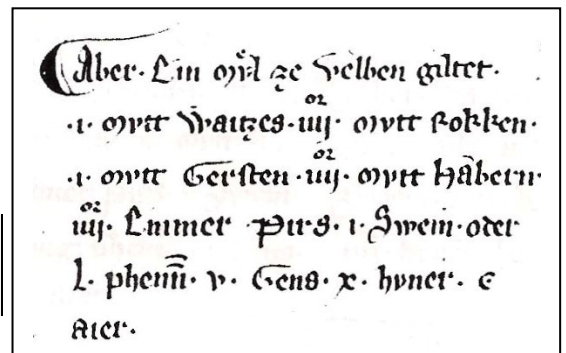 Aber. Ein mvͤl ze Velben giltet.
.i. mvtt Waitzes . iiijor . mvtt Rokken.
.i. mvtt Gersten . iiijor . mvtt Häbern.
iiijor . Emmer Pirs . i . Swein . oder
l. phenn̄ . v . Gens . x . hvner . C
aier .